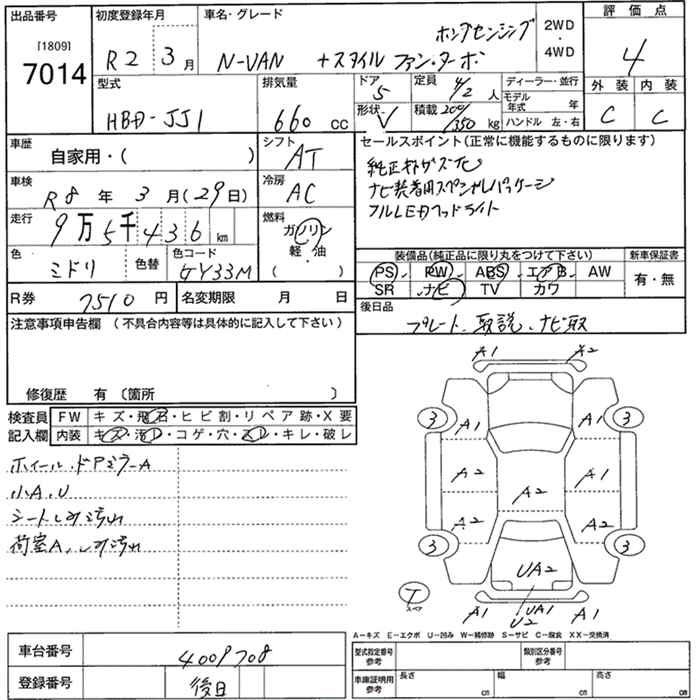 出品番号 初度登録年月 車名・グレード 評価点
[1809]
7014
R2 3月
N-VAN +スタイル ファン・ターボ
ホンダセンシング
2WD
・
4WD
4
型式 排気量 ドア 定員 ディーラー・並行 外装 内装
HBD-JJ1 660 CC
5 4/2人
モデル年式 年
形状 V 積載 200/350 kg
ハンドル 左・右
C C
車歴 シフト セールスポイント(正常に機能するものに限ります)
自家用・( ) AT
純正ナビ
ナビ装着用スペシャルパッケージ
フルLEDヘッドライト
車検 冷房
R8年3月(29日) AC
走行 燃料
9万5千436km
ガソリン
軽・油
( )
色 色替 色コード
ミドリ GY33M
装備品(純正品に限り丸をつけて下さい) 新車保証書
PS PW ABS エアB AW
SR ナビ TV カワ
有・無
R券 7510円 名変期限 月 日
後日品
プレート、取説、ナビ取
注意事項申告欄(不具合内容等は具体的に記入して下さい)
修復歴 有(箇所 )
検査員 FW キズ・飛石・ヒビ割・リペア跡・X要
記入欄 内装 キズ・汚レ・コゲ・穴・スレ・キレ・破レ
ホイール、ドアミラーA
小A、U
シートしみ汚れ
荷室A、しみ汚れ
A1 A2
3 3
A1 A1
A2 A1
A2
A2 A2
3 3
UA2
T
スペア
A1 UA1 A1
U2
A-キズ E-エクボ U-凹み W-補修跡 S-サビ C-腐食 XX-交換済
車台番号 4009708
登録番号 後日
型式指定番号 参考 類別区分番号 参考
車庫証明用 参考 長さ cm 幅 cm 高さ cm